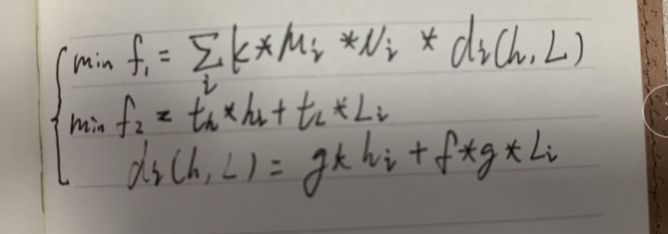 min f₁ = ∑ᵢ k*Mᵢ*Nᵢ*dᵢ(h,L)
min f₂ = tₕ*hᵢ+t_L*Lᵢ
dᵢ(h,L) = g*hᵢ+f*g*Lᵢ